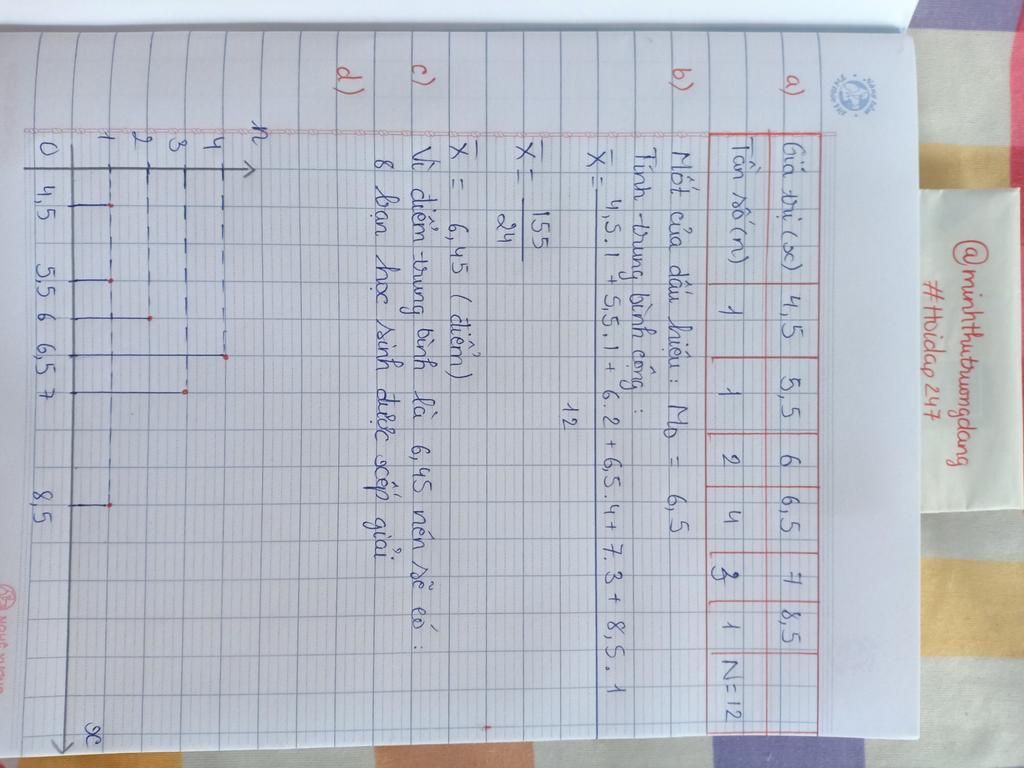 @minhthutruongdang
#Hoidap247
a)
Giá trị (x) 4,5 5,5 6 6,5 7 8,5
Tần số (n) 1 1 2 4 3 1 N=12
b) Mốt của dấu hiệu: M₀ = 6,5
Tính trung bình cộng:
X̄ = 4,5.1 + 5,5.1 + 6.2 + 6,5.4 + 7.3 + 8,5.1
12
X̄ = 155
24
X̄ = 6,45 (điểm)
c) Vì điểm trung bình là 6,45 nên sẽ có:
8 bạn học sinh được xếp giải
d)
n
4
3
2
1
0 4,5 5,5 6 6,5 7 8,5 x